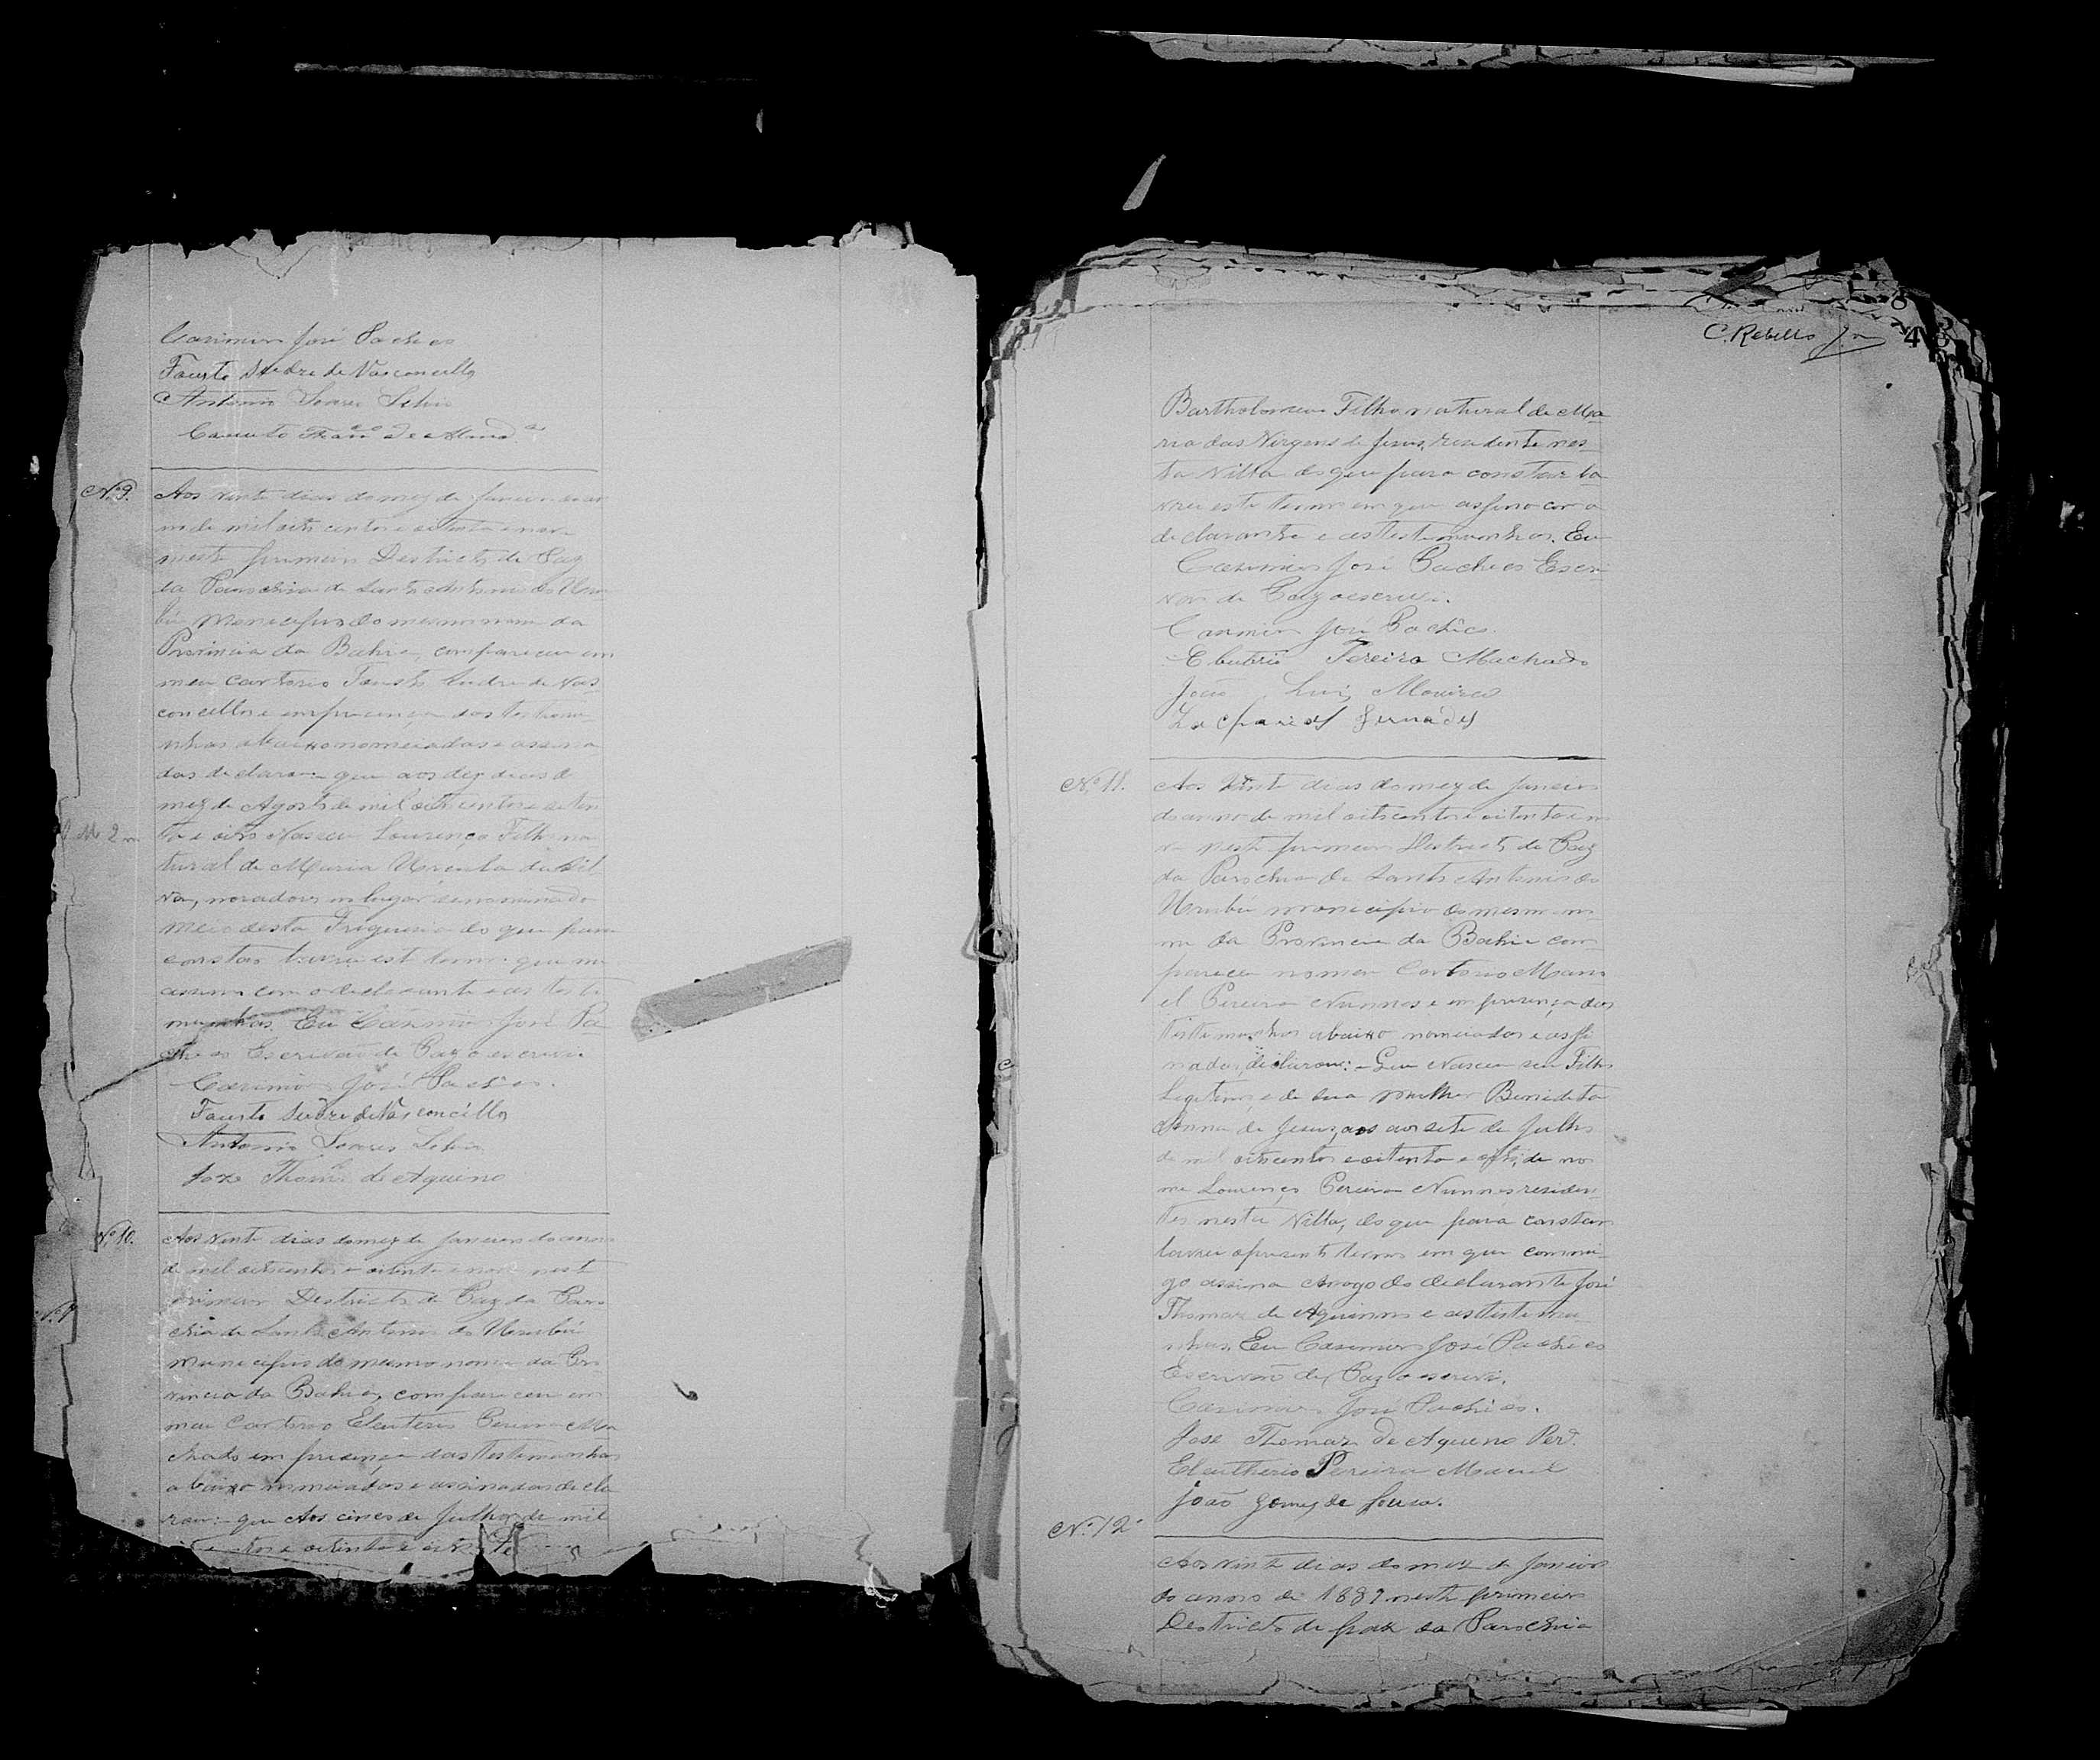 Casimiro José Pachêco
Fausto Sudre de Vasconcellos
Antonio Soares
Canuto Franco de Almda
Nº 9.
Aos vinte dias do mez de Janeiro do an
no de mil oito centos e oitenta e nove
neste primeiro Districto de Paz
da Parochia de Santo Antonio do Uru
bú Monicipio do mesmo nome da
Provincia da Bahia, compareceu em
meu Cartorio Fausto Sudre de Vas
concellos e em presença das testemu
nhas abaixo nomeiadas e assina
das declarou: que aos dez dias do
mez de Agosto de mil oito centos e oiten
ta e oito Nasceu Lourenço Filho na
tural de Maria Urcula da Sil
va, moradores no lugar denominado
Meio desta Freguesia do que para
constar lavrei este termo que
assino com o declarante e as teste
munhas. Eu Casimiro José Pa
chêco Escrivão de Paz o escrevi
Casimiro José Pachêco.
Fausto Sudre de Vasconcéllos
Antonio Soares
Joze Thomaz de Aquino
Nº 10.
Aos vinte dias do mez de Janeiro do anno
de mil oitocentos e oitenta e nove neste
primeiro Districto de Paz da Paro
chia de Santo Antonio do Urubú
municipio do mesmo nome da Pro
vincia da Bahia, compareceu em
meu Cartorio Eleuterio Pereira Ma
chado em presença das testemunhas
abaixo nomeiadas e assinadas decla
rou: que Aos cinco de Julho de mil
oitocentos e oitenta e oito
C. Rebello
4
Bartholomeu Filho natural de Ma
ria das Virgens de Jesus, residente nes
ta Villa do que para constar la
vrei este termo em que assino com o
declarante e as testemunhas. Eu
Casimiro José Pachêco Escri
vão de Paz o escrevi.
Casimiro José Pachêco.
Eleuterio Pereira Machado
João Luis Moreira
Zacharias Fernades
Nº 11.
Aos Vinte dias do mez de Janeiro
do anno de mil oitocentos e oitenta e no
ve neste primeiro Districto de Paz
da Parochia de Santo Antonio do
Urubú monicipio do mesmo no
me da Provincia da Bahia com
pareceu no meu Cartorio Mano
el Pereira Nunnes e em presença das
testemunhas abaixo nomeiadas e assi
nadas, declarou: - Que Nasceu seu Filho
Legitimo, e de sua mulher Benedita
Anna de Jesus, aos sete de Julho
de mil oitocentos e oitenta e oito, de no
me Lourenço Pereira Nunnes residen
tes nesta Villa, do que para constar
lavrei o presente termo em que commi
go assina Arogo do declarante José
Thomaz de Aquinno e as testemu
nhas. Eu Casimiro José Pachêco
Escrivão de Paz o escrevi.
Casimiro José Pachêco.
Jose Thomaz de Aqueno Perª.
Eleutherio Pereira Maciel
João Gomes de Souza.
Nº 12
Aos vinte dias do mez de Janeiro
do anno de 1889 neste primeiro
Destricto de paz da Parochia